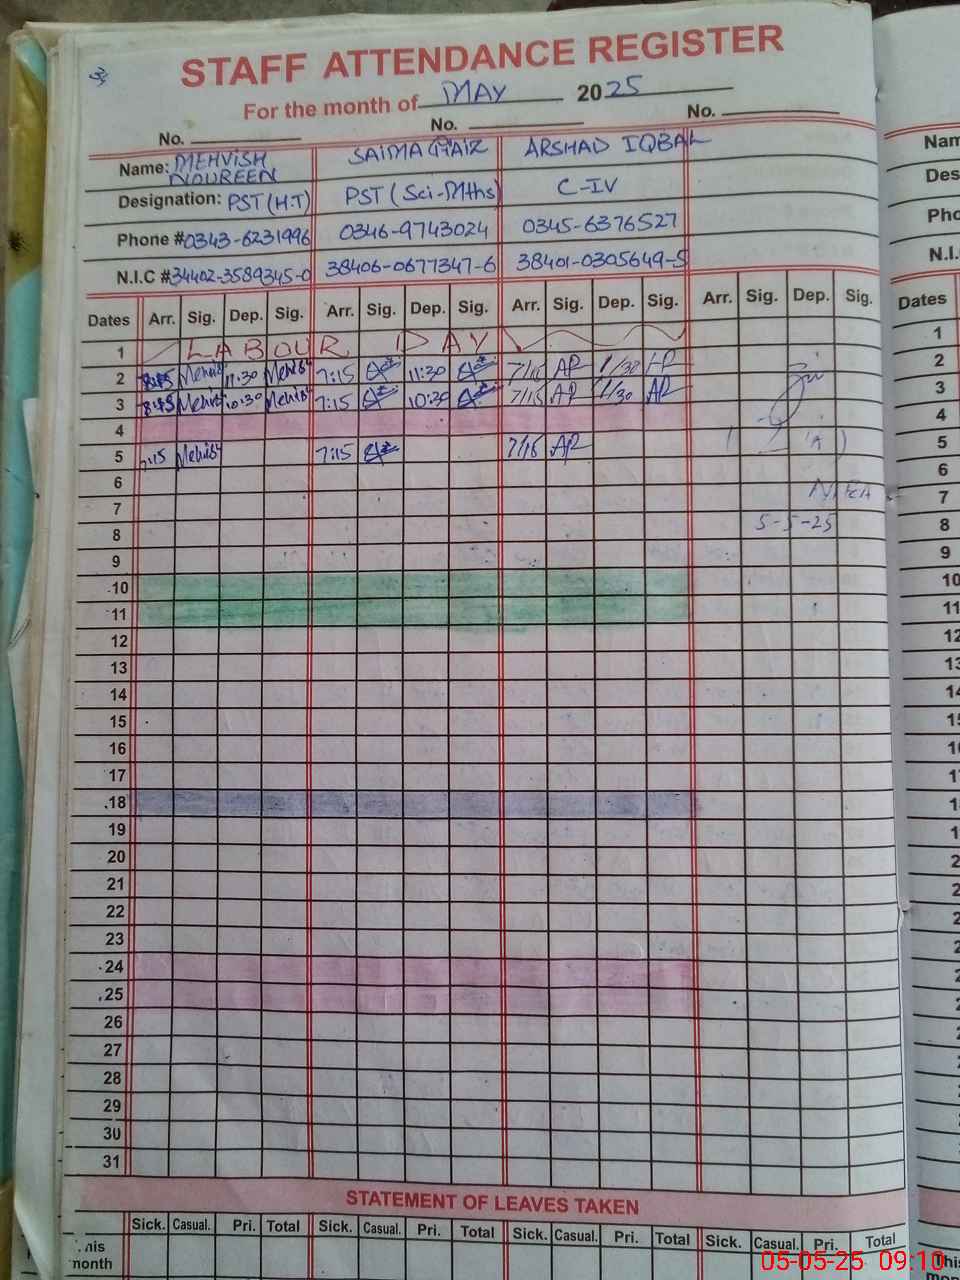 STAFF ATTENDANCE REGISTER
For the month of MAY 2025
No. No. No.
Name: MEHVISH NOUREEN SAIMA ARSHAD IQBAL
Designation: PST (H.T) PST (Sci-Mths) C-IV
Phone #0343-6231996 0346-9743024 0345-6376527
N.I.C #34402-3589345-0 38406-0677347-6 38401-0305649-5
Dates Arr. Sig. Dep. Sig. Arr. Sig. Dep. Sig. Arr. Sig. Dep. Sig. Arr. Sig. Dep. Sig.
1 LABOUR DAY
2 11:30 7:15 11:30 1/30
3 10:30 7:15 10:30 7/15 AR 1/30 AR
4
5 7:15 AR
6
7
8 5-5-25
9
10
11
12
13
14
15
16
17
18
19
20
21
22
23
24
25
26
27
28
29
30
31
STATEMENT OF LEAVES TAKEN
Sick. Casual. Pri. Total Sick. Casual. Pri. Total Sick. Casual. Pri. Total Sick. Casual. Pri. Total
month
05-05-25 09:10
Dates
1
2
3
4
5
6
7
8
9
10
11
12